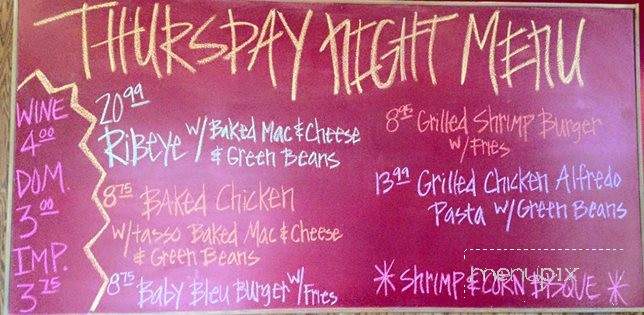 THURSDAY NIGHT MENU
WINE
4.00
DOM.
3.00
IMP.
3.75
20.99
Ribeye w/ Baked Mac & Cheese
& Green Beans
8.75 Baked Chicken
w/ tasso Baked Mac & Cheese
& Green Beans
8.75 Baby Bleu Burger w/ Fries
8.95 Grilled Shrimp Burger
w/ Fries
13.99 Grilled Chicken Alfredo
Pasta w/ Green Beans
* Shrimp & Corn Bisque *
menupix